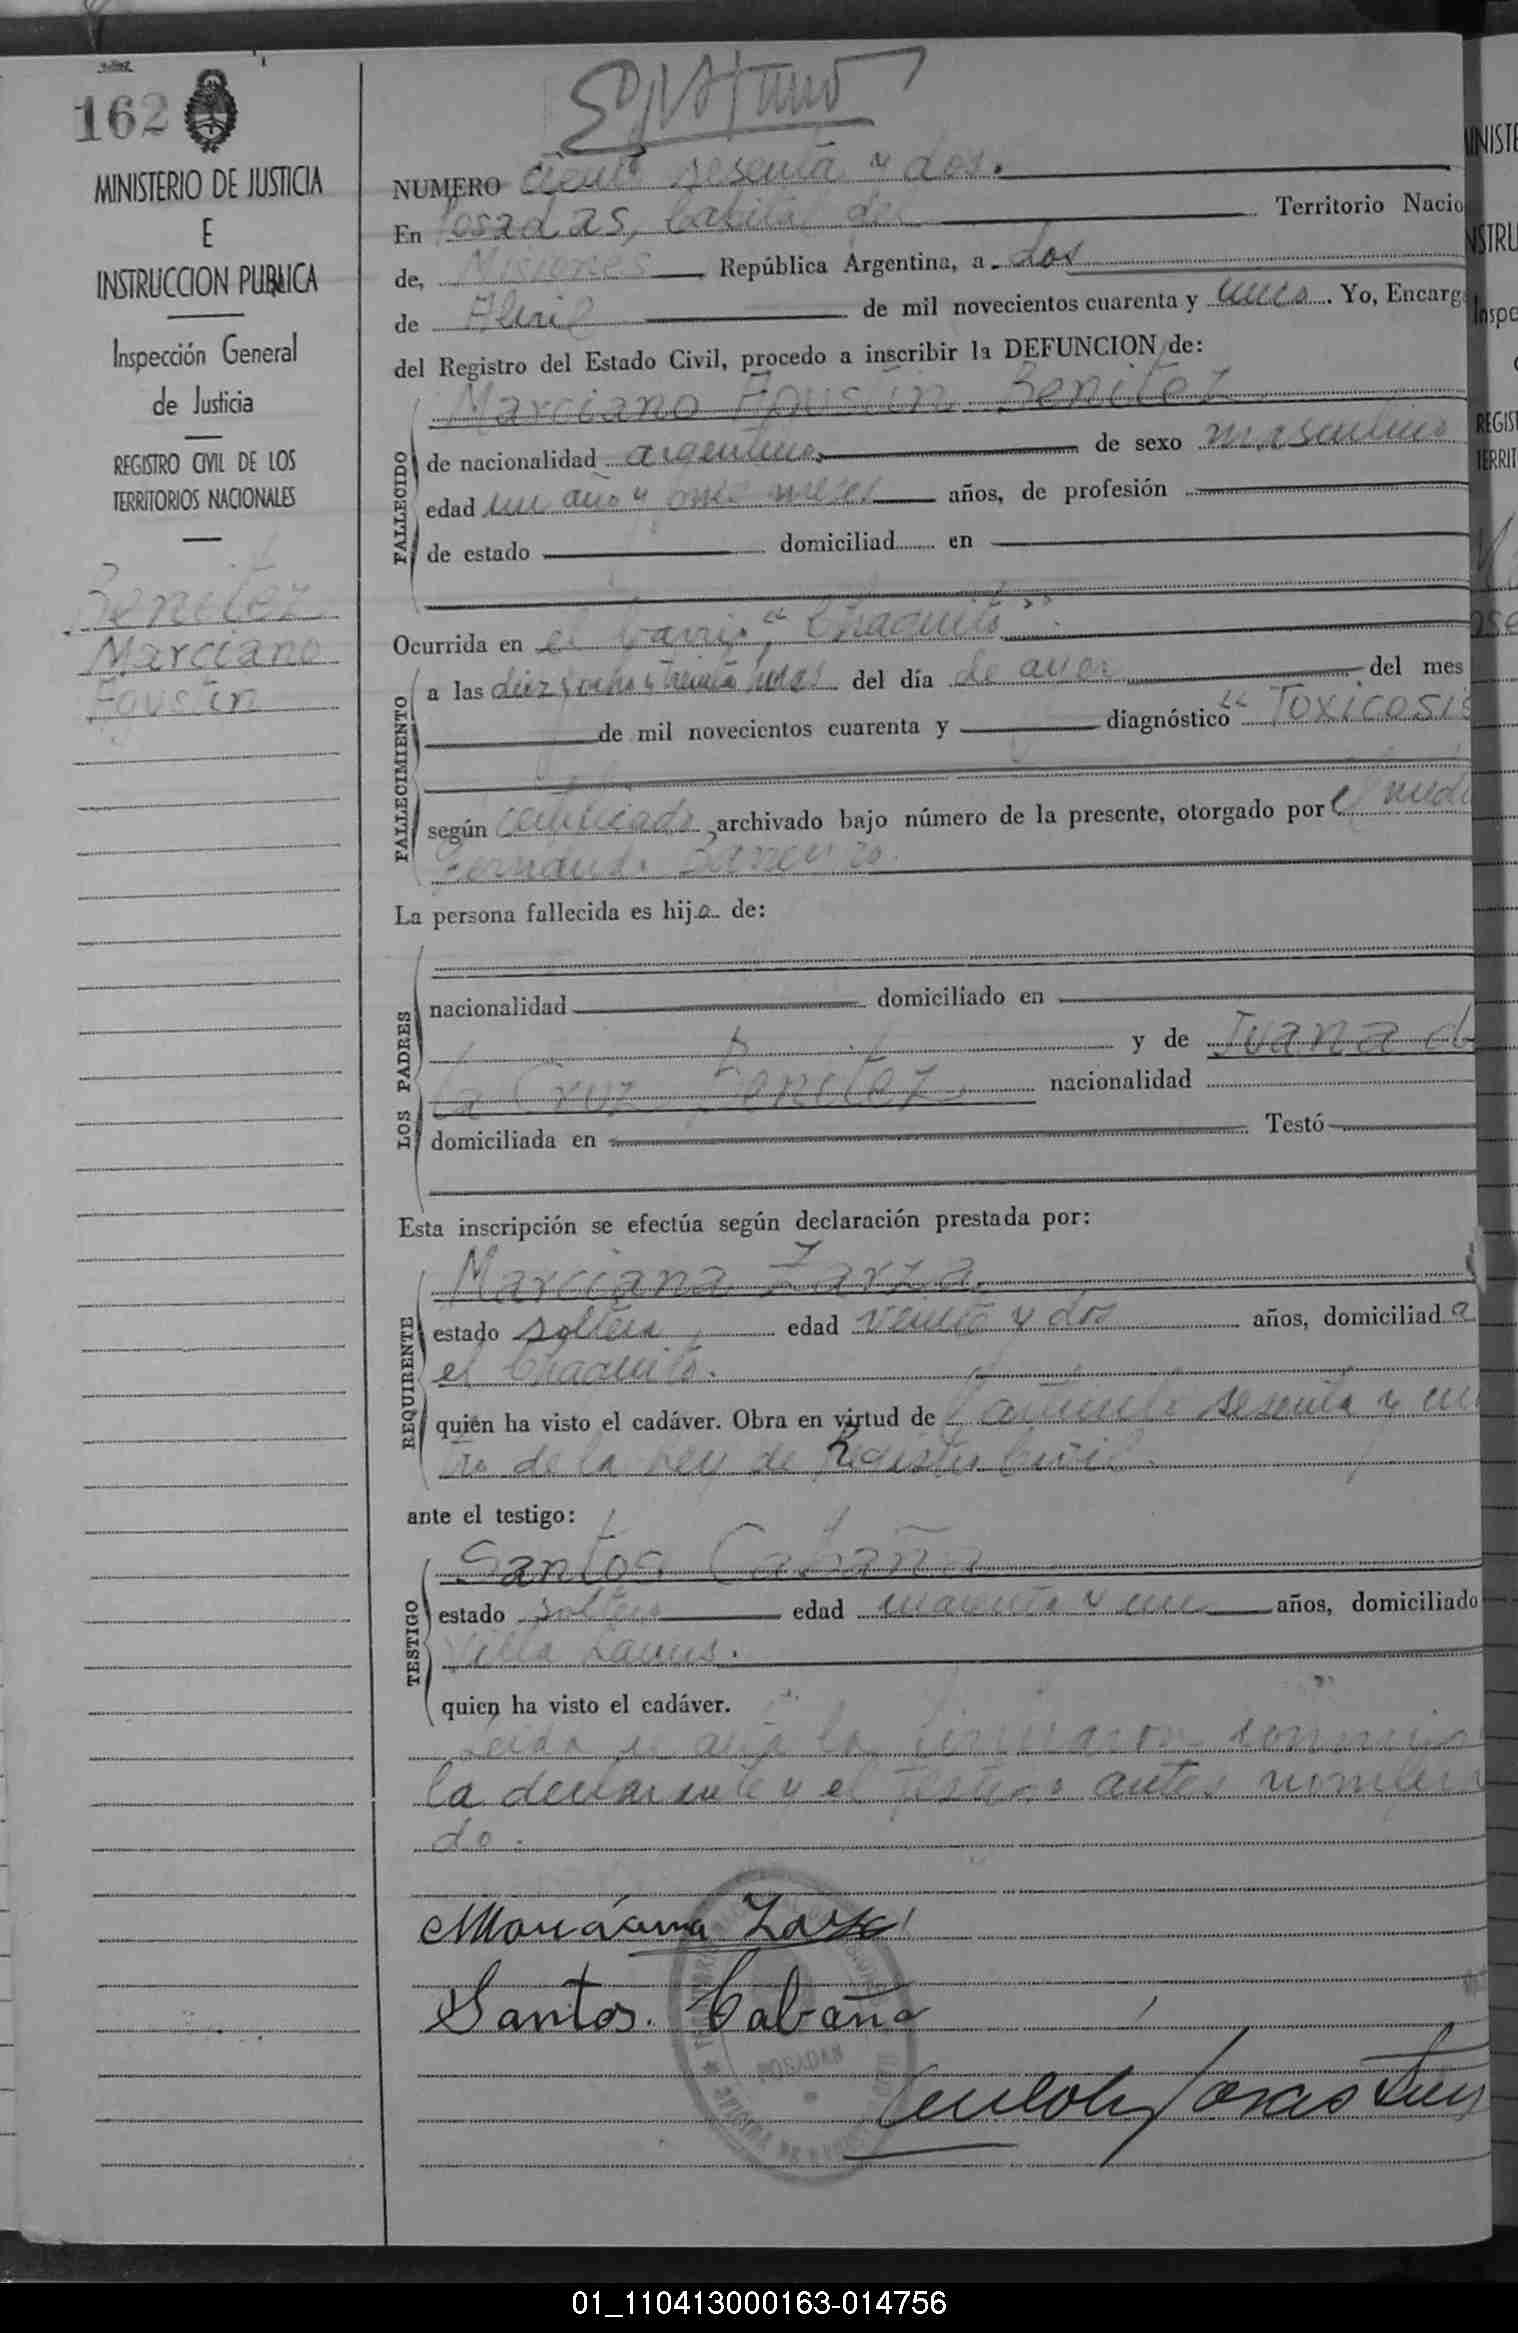 162
MINISTERIO DE JUSTICIA
E
INSTRUCCION PUBLICA
Inspección General
de Justicia
REGISTRO CIVIL DE LOS
TERRITORIOS NACIONALES
Benitez
Marciano
Agustin
NUMERO ciento sesenta y dos.
En Posadas, Capital de Territorio Nacio
de, Misiones República Argentina, a dos
de Abril de mil novecientos cuarenta y uno. Yo, Encarg
del Registro del Estado Civil, procedo a inscribir la DEFUNCION de:
FALLECIDO
Marciano Agustin Benitez
de nacionalidad argentino de sexo masculino
edad un año y once meses años, de profesión
de estado domiciliad en
Ocurrida en el barrio "Chaquito"
FALLECIMIENTO
a las diez y ocho y treinta horas del día de ayer del mes
de mil novecientos cuarenta y diagnóstico "Toxicosis
según certificado archivado bajo número de la presente, otorgado por el medi
Fernando
La persona fallecida es hijo de:
LOS PADRES
nacionalidad domiciliado en
y de Juana de
la Cruz Benitez nacionalidad
domiciliada en Testó
Esta inscripción se efectúa según declaración prestada por:
REQUIRENTE
Marciana Zarza
estado soltera, edad veinte y dos años, domiciliada
el Chaquito.
quién ha visto el cadáver. Obra en virtud de articulo sesenta y cua
tro de la Ley de Registro Civil.
ante el testigo:
TESTIGO
Santos Cabaña
estado soltero edad cuarenta y un años, domiciliado
Villa Lanus.
quien ha visto el cadáver.
Leida el acta la firmaron conmigo
la declarante y el testigo antes nombra
do.
Marciana Zarza
Santos Cabaña
POSADAS
01_110413000163-014756